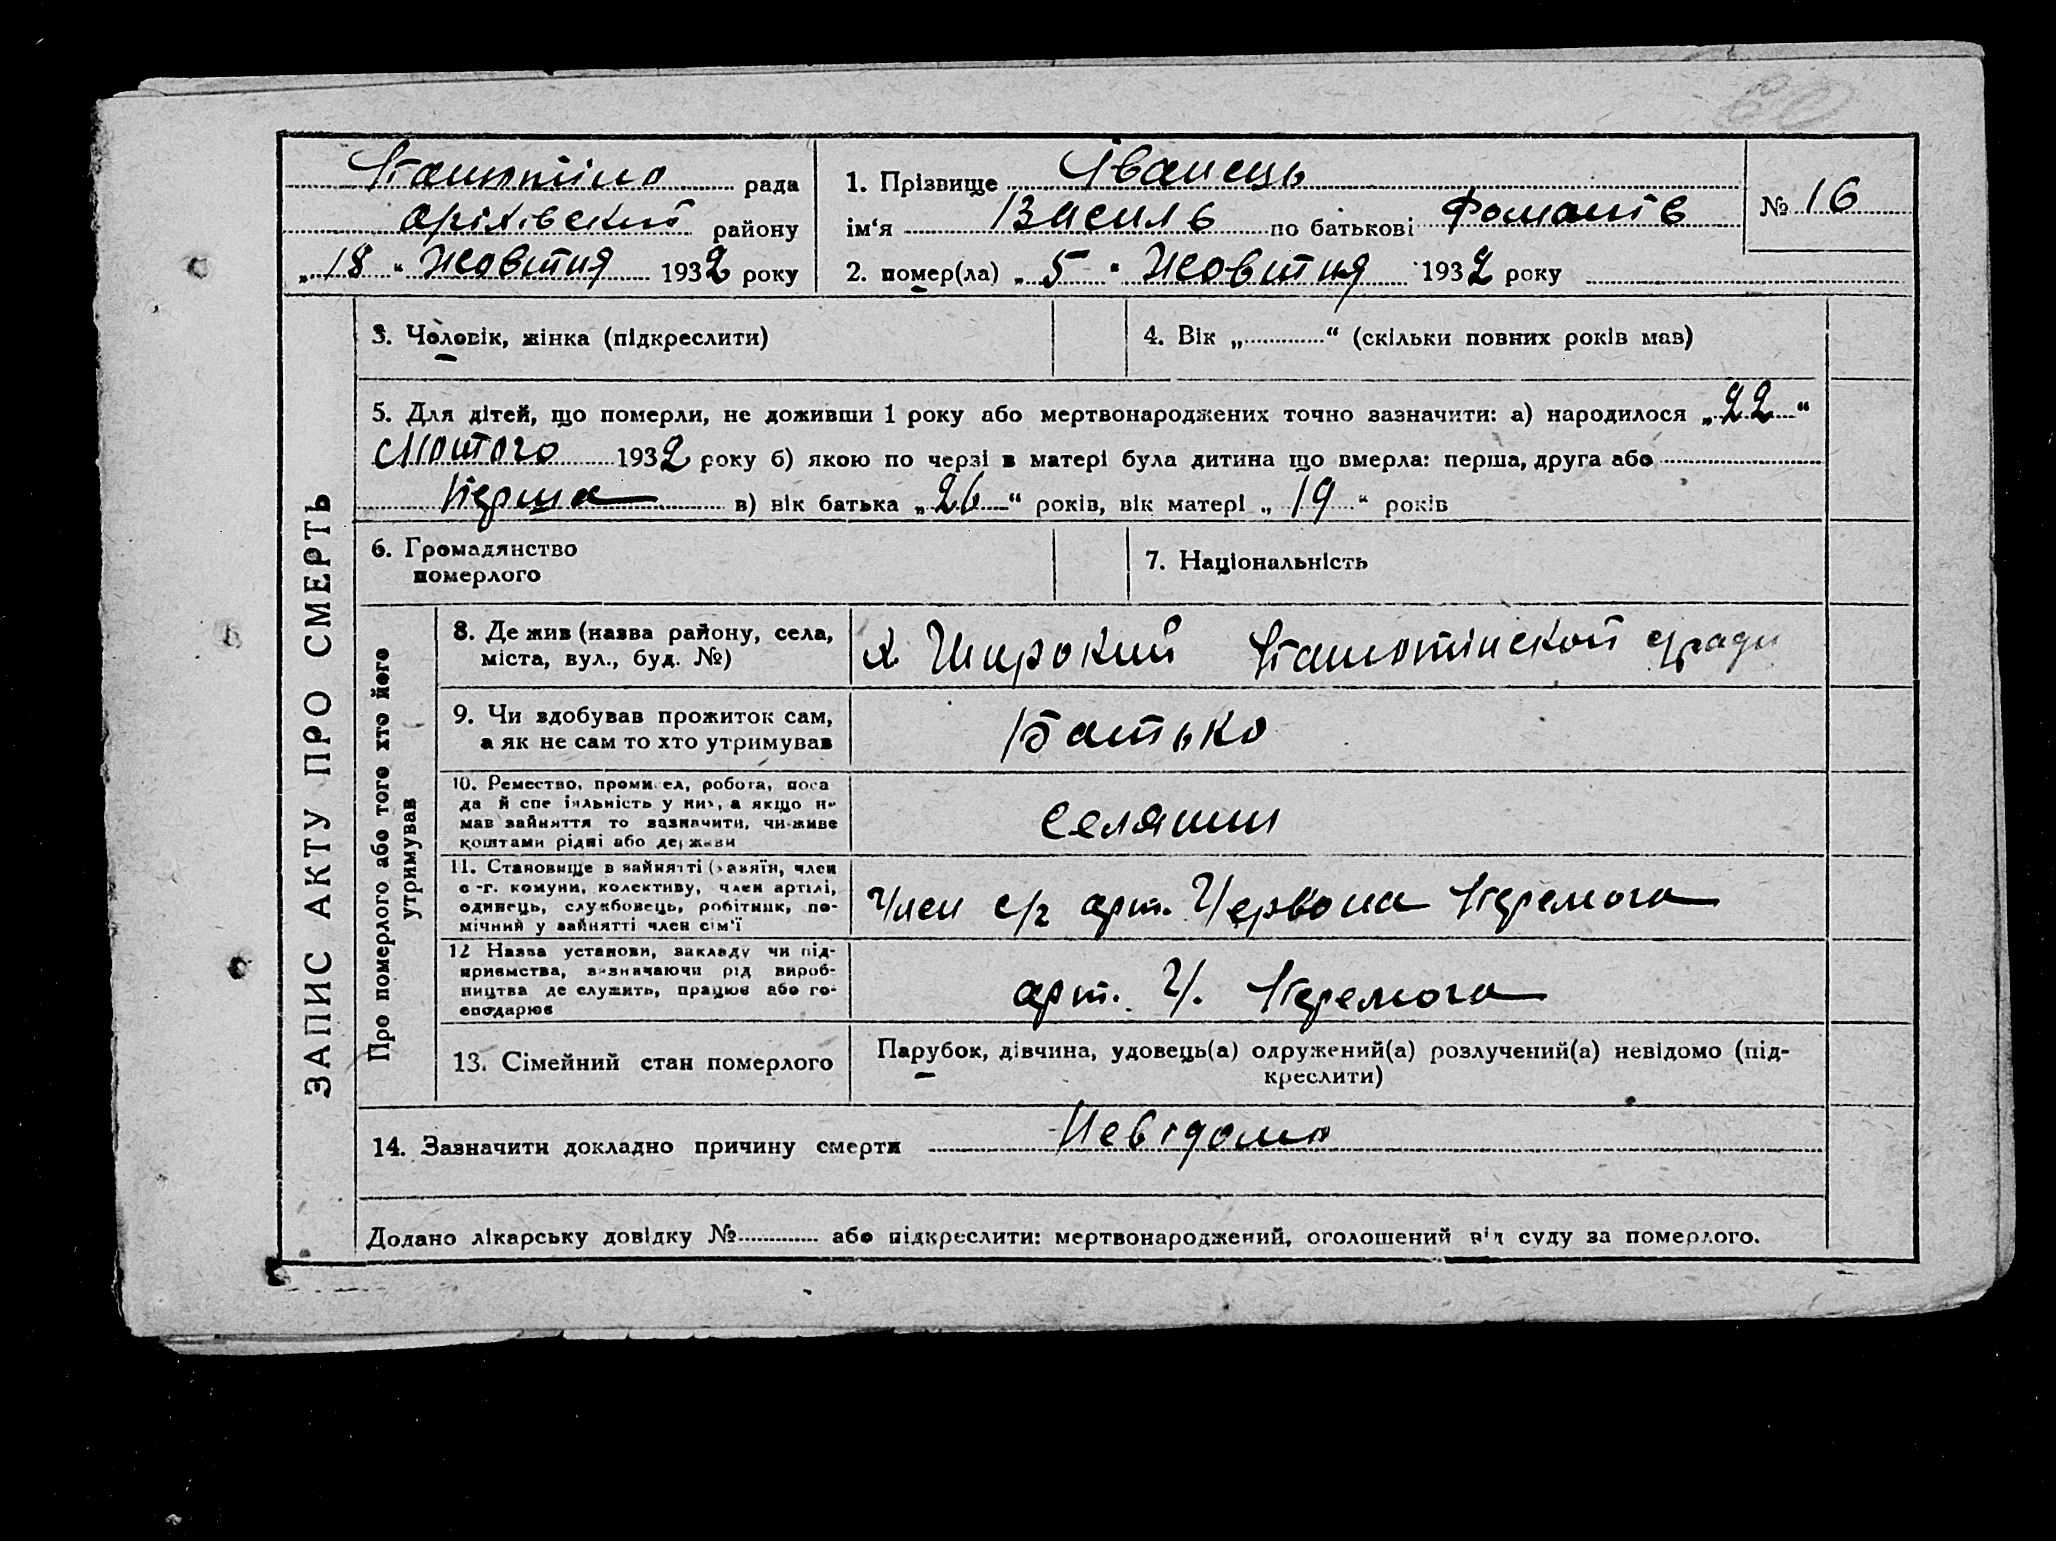 рада
оріхівский району
„ 18 “ жовтня 1932 року
1. Прізвище Іванець
ім‘я Василь по батькові Фоманів
№ 16
2. помер(ла) „ 5 “ жовтня 1932 року
ЗАПИС АКТУ ПРО СМЕРТЬ
3. Чоловік, жінка (підкреслити)
4. Вік „ “ (скільки повних років мав)
5. Для дітей, що померли, не доживши 1 року або мертвонароджених точно зазначити: а) народилося „ 22 “
Лютого 1932 року б) якою по черзі в матері була дитина що вмерла: перша, друга або
перша в) вік батька „ 26 “ років, вік матері „ 19 “ років
6. Громадянство
померлого
7. Національність
Про померлого або того хто його
утримував
8. Де жив (назва району, села,
міста, вул., буд. №)
х Широкий
9. Чи здобував прожиток сам,
а як не сам то хто утримував
Батько
10. Ремество, промисел, робота, поса
да й спеціяльність у них, а якщо не
мав зайняття то зазначити, чи живе
коштами рідні або держави
селянин
11. Становище в зайнятті (хазяїн, член
с-г. комуни, колективу, член артілі,
одинець, службовець, робітник, по-
мічний у зайнятті член сім'ї
Член с/г арт. Червона Перемога
12 Назва установи, закладу чи під-
приємства, визначаючи рід вироб-
ництва де служить, працює або го-
сподарює
арт. Ч. Перемога
13. Сімейний стан померлого
Парубок, дівчина, удовець(а) одружений(а) розлучений(а) невідомо (під-
креслити)
14. Зазначити докладно причину смерти Невідома
Додано лікарську довідку № або підкреслити: мертвонароджений, оголошений від суду за померлого.